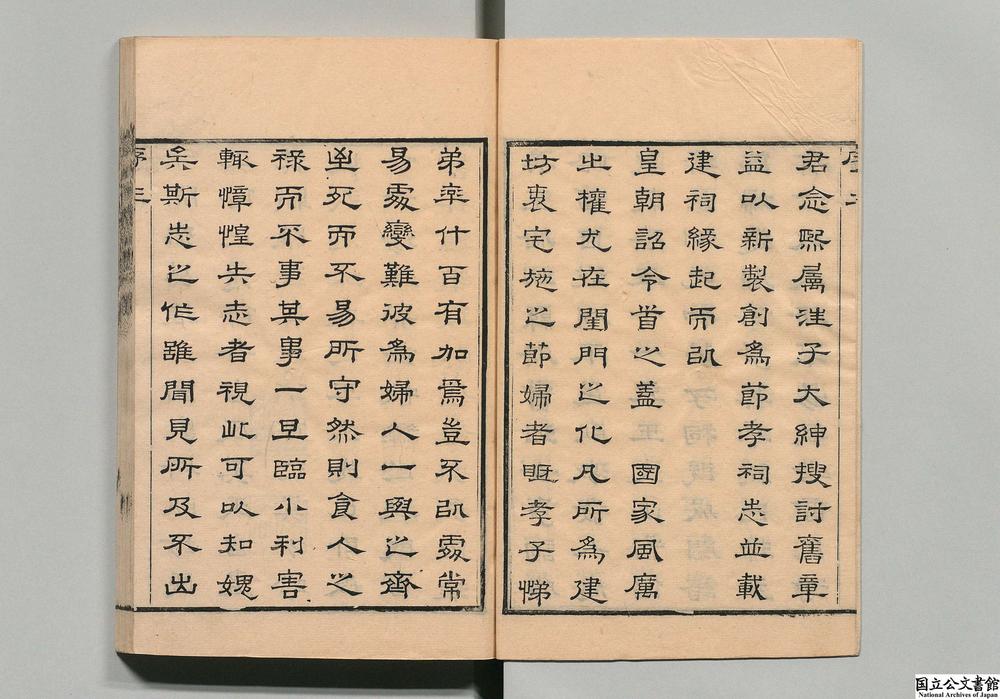 序二
君念熙屬汪子大紳搜討舊章
益以新製創爲節孝祠志並載
建祠緣起而以
皇朝詔令首之蓋國家風厲
之權尤在閨門之化凡所爲建
坊表宅施之節婦者眡孝子悌
弟率什百有加焉豈不以處常
易處變難彼爲婦人一與之齊
至死而不易所守然則食人之
祿而不事其事一旦臨小利害
輒慞惶失志者視此可以知媿
矣斯志之作雖聞見所及不出
序三
国立公文書館
National Archives of Japan